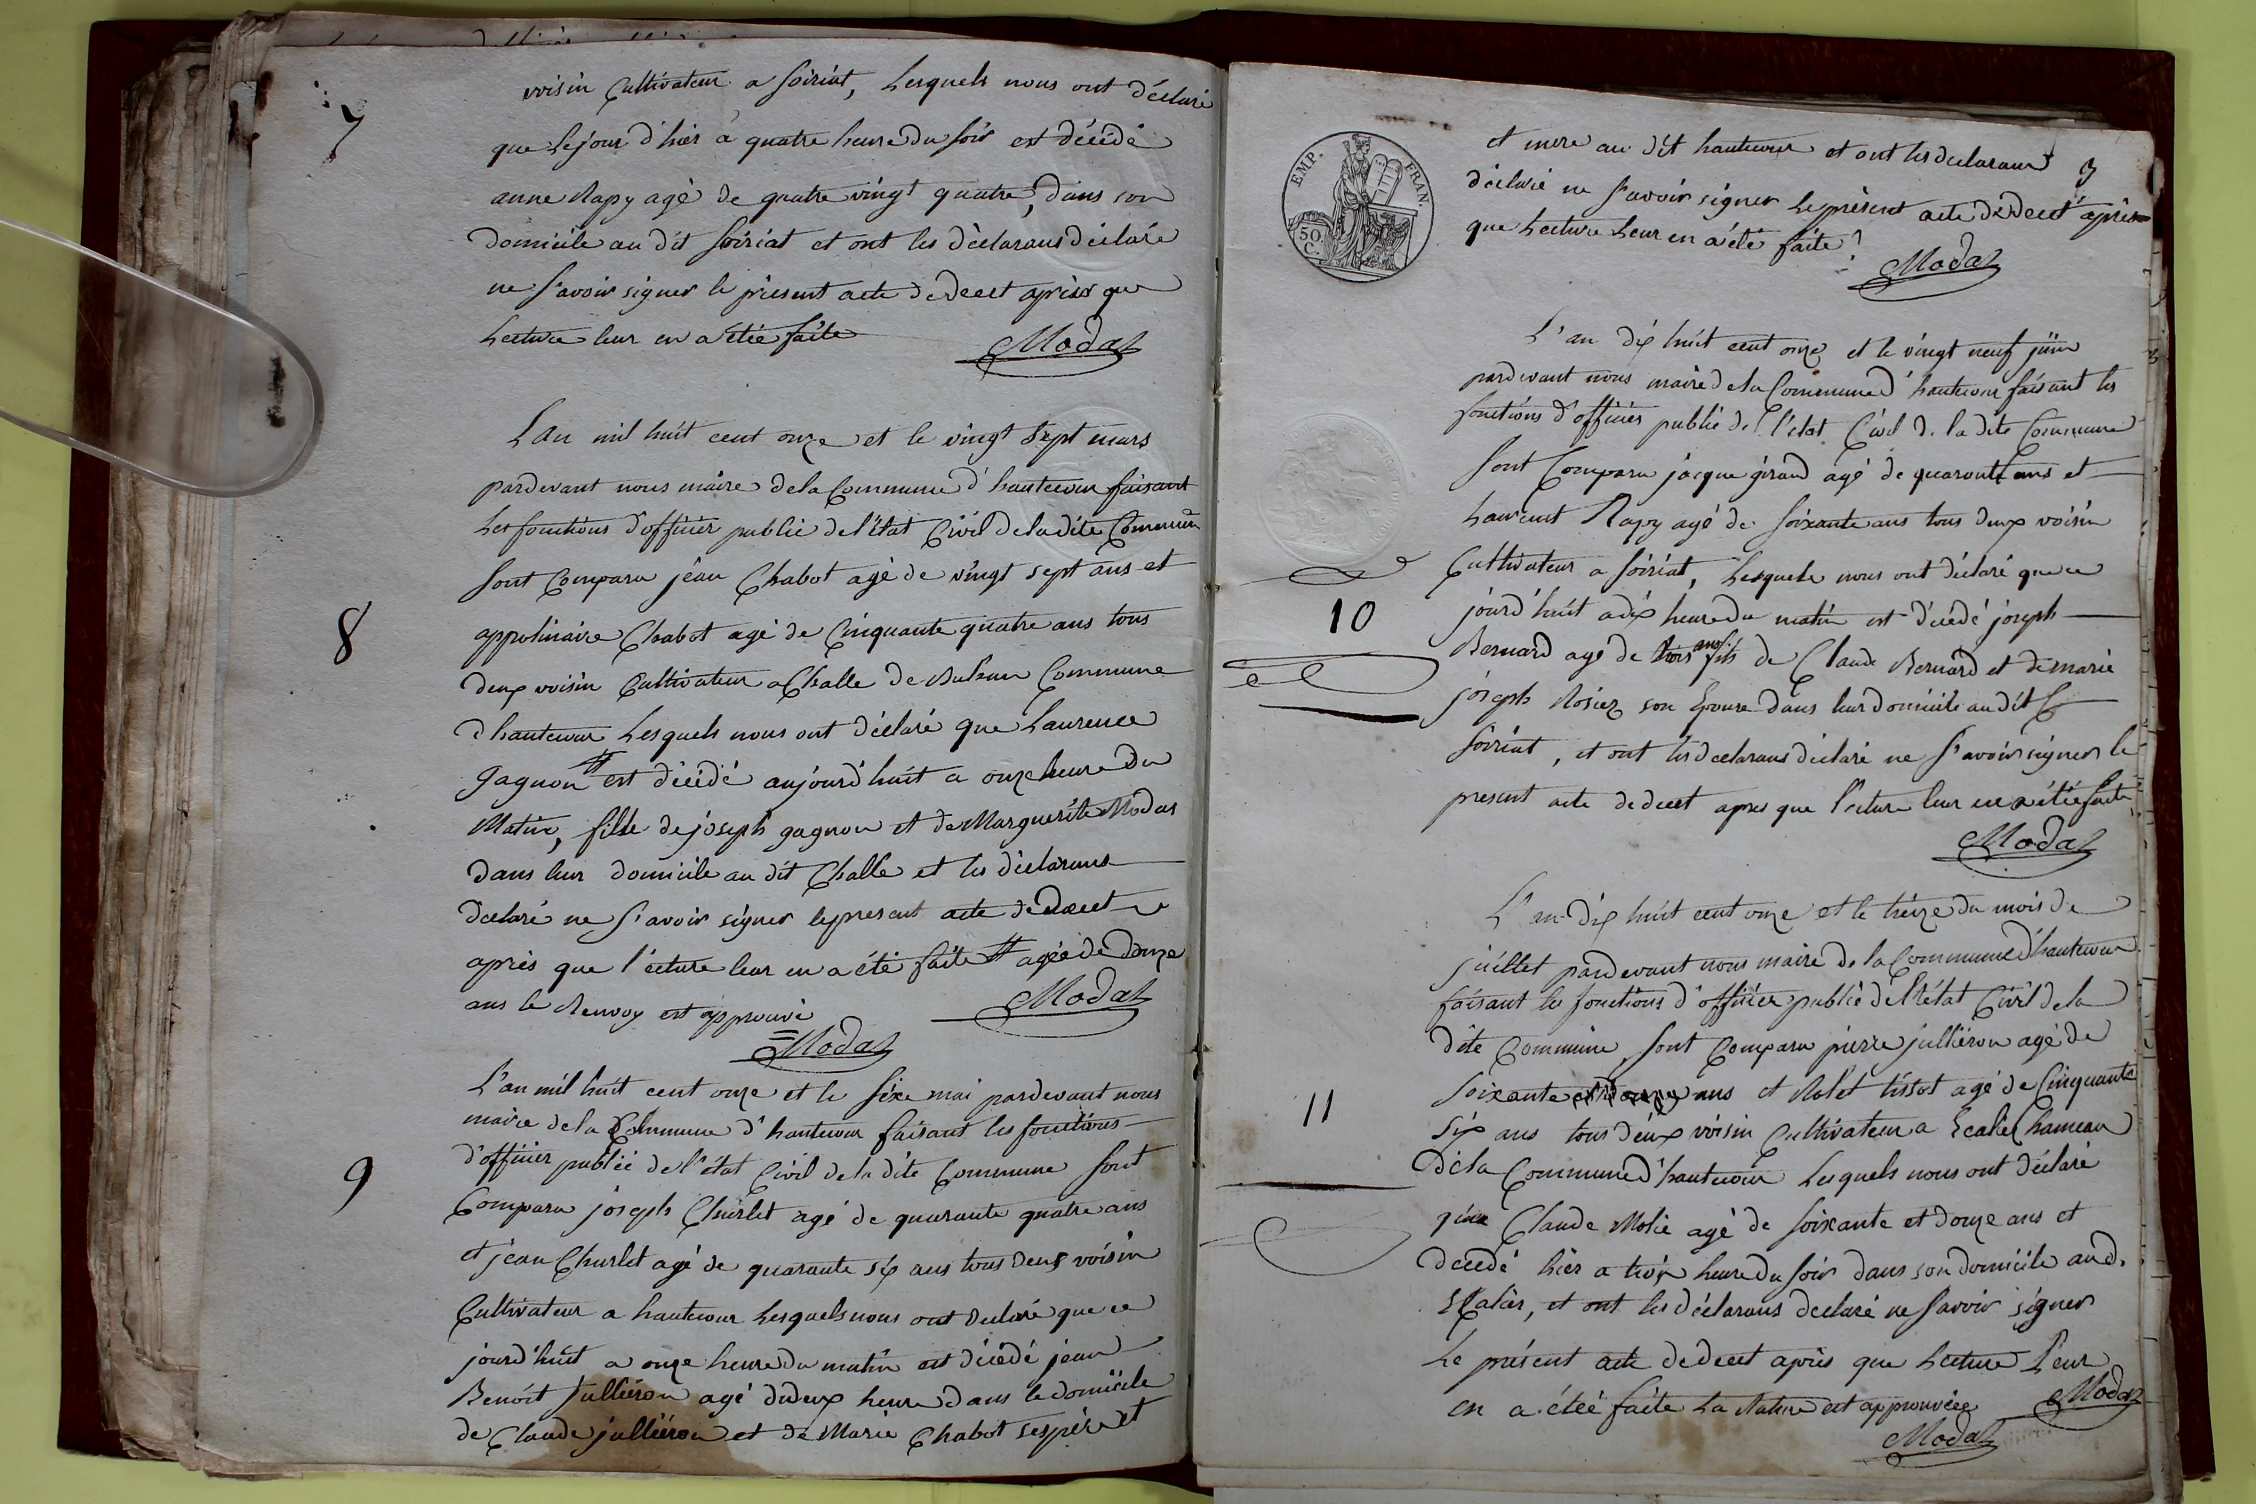 7
voisin Cultivateur a Soiriat, Lesquels nous ont déclaré
que Le jour d'hier à quatre heure du soir est décédé
anne Rapy agé de quatre vingt quatre, dans son
domicile au dit Soiriat et ont les déclarans déclaré
ne s'avoir signer le présent acte de decet après que
Lecture leur en a étée faite
Modaz
8
L'an mil huit cent onze et le vingt sept mars
pardevant nous maire de la Commune d'hautecour faisant
Les fonctions d'officier public de l'état Civil de la dite Commune
sont Comparu jean Chabot agé de vingt sept ans et
appolinaire Chabot agé de Cinquante quatre ans tous
deux voisin Cultivateur a Challe de Commune
d'hautecour Lesquels nous ont déclaré que Laurence
gagnon # est décédé aujourd'huit a onze heure du
Matin, fille de joseph gagnon et de Marguerite Modas
dans leur domicile au dit Challe et les déclarans
declaré ne s'avoir signer le present acte de decet
après que l'ecture leur en a été faite # agée de douze
ans le Renvoy est approuvé
Modaz
Modaz
9
L'an mil huit cent onze et le sixe mai pardevant nous
maire de la Commune d'hautecour faisant les fonctions
d'officier public de l'état Civil de la dite Commune sont
Comparu joseph Churlet agé de quarante quatre ans
et jean Churlet agé de quarante six ans tous deux voisin
Cultivateur a hautecour Lesquels nous ont declaré que ce
jourd'huit a onze heure du matin est décédé jean
Benoit Julliéron agé de deux heure dans le domicile
de Claude julliéron et de Marie Chabot ses père et
EMP. FRAN.
50 C.
3
et mere au dit hautecour et ont les declarans
déclaré ne s'avoir signer Le présent acte de decet après
que Lecture Leur en a été faite
Modaz
10
L'an dix huit cent onze et le vingt neuf juin
pardevant nous maire de la Commune d'hautecour faisant les
fonctions d'officier public de l'état Civil de la dite Commune
sont Comparu jacque girand agé de quarante ans et
Laurent Rapy agé de soixante ans tous deux voisin
Cultivateur a Soiriat, Lesquels nous ont déclaré que ce
jourd'huit a dix heure du matin est décédé joseph
Bernard agé de trois ans fils de Claude Bernard et de marie
joseph Rosier son Epouse dans leur domicile au dit
Soiriat, et ont les declarans déclaré ne s'avoir signer le
present acte de decet apres que l'ecture leur en a étée faite
Modaz
11
L'an dix huit cent onze et le treize du mois de
juillet pardevant nous maire de la Commune d'hautecour
faisant les fonctions d'officier public de l'état Civil de la
dite Commune sont Comparu pierre julliéron agé de
soixante ans et Rolet tissot agé de Cinquante
six ans tous deux voisin Cultivateur a Chameau
de la Commune d'hautecour Lesquels nous ont déclaré
que Claude Molié agé de soixante et douze ans et
decedé hier a trois heure du soir dans son domicile aud.
, et ont les déclarans declaré ne savoir signer
Le présent acte de decet après que Lecture Leur
en a étée faite La Rature est approuvée
Modaz
Modaz